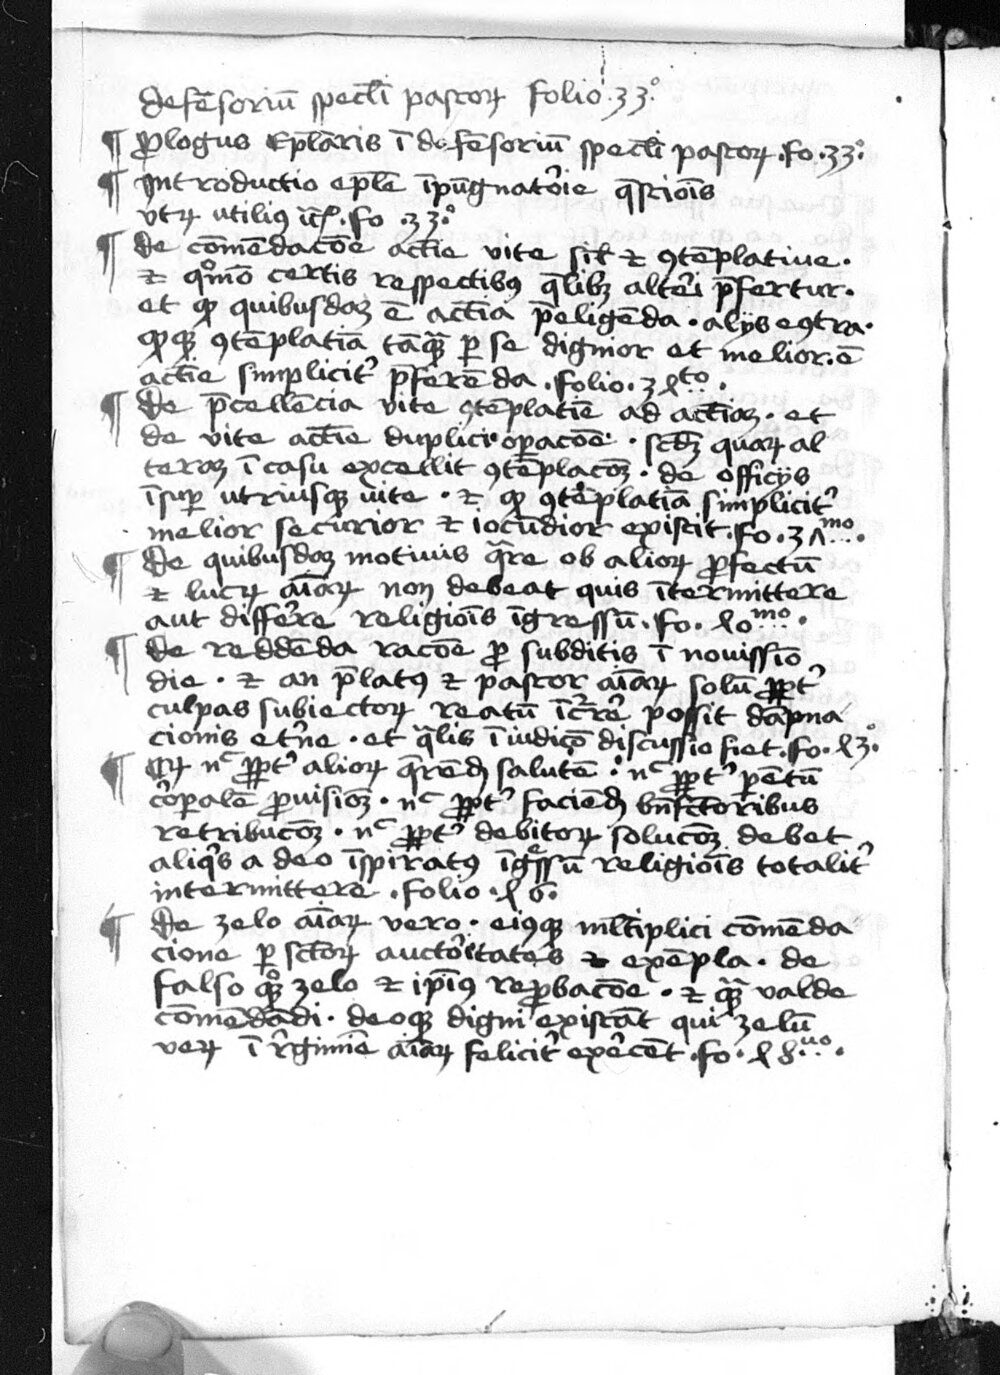 defēsoriū specl̄i pastoꝝ folio .33.°
¶ ꝓlogus ep̄laris ī defēsoriū specl̄i pastoꝝ .fo .33.°
¶ Introductio ep̄le īpūgnato᷒ie q̄stiōis
vtꝝ utiliꝰ .fo .33.°
¶ De cōmēdacōe act̄ie vite sil̄ ⁊ ꝯtēplatiue .
⁊ qͦmō certis respectibꝰ q̄libꝫ alte᷒i p̄fertur .
et ꝙ quibusdaꝫ ē act̄ia p̄eligēda . alijs eꝯtra .
ꝙqꝫ ꝯtēplatīa tāqᷓꝫ ꝑ se dignior et melior . ē
act̄ie simplicit᷒ p̄ferēda . folio . 3ꝭto .
¶ De p̄cellēcia vite ꝯtēplatīe ad act̄iaꝫ . et
de vite act̄ie duplici oꝑacōe . scd̄ꝫ quaꝝ al
teraꝫ ī casu excellit ꝯtēplacōꝫ . de officijs
īsuꝑ utriusqꝫ vite . ⁊ ꝙ ꝯtēplatīa simplicit᷒
melior securior ⁊ iocūdior existit . fo . 3ɅMo .
¶ De quibusdaꝫ motiuis qᷓre ob alioꝝ ꝓfectū
⁊ lucꝝ aīaꝝ non debeat quis ītermittere
aut differe religiōis īgressū . fo . ꝭomo .
¶ De reddēda racōe ꝓ subditis ī nouissīo
die . ⁊ an p̄latꝰ ⁊ pastor aīaꝝ solū ꝓpt᷒
culpas subiectoꝝ reatū īcr̄re᷒ possit dāpna
cionis et᷒ne . et qᷓlis ī iudic̄o discussio fiet . fo . ꝭ3.°
¶ An nͨ ꝓpt᷒ alioꝝ q̄rend̄ salutē . nͨ ꝓpt᷒ pēntū
co᷒ꝑalē ꝓuisioꝫ . nͨ ꝓpt᷒ faciend̄ bn̄fctoribus
retribucōꝫ . nͨ ꝓpt᷒ debitoꝝ solucōꝫ debet
aliqͥs a deo īspiratꝰ īgͤssū religiōis totalit᷒
intermittere . folio . ꝭ6.
¶ De zelo aīaꝝ vero . eiꝰqꝫ ml̄tiplici cōmēda
cione ꝑ sct̄oꝝ aucto᷒itates ⁊ exēpla . de
falso qͦꝫ zelo ⁊ ip̄iꝰ reꝓbacōe . ⁊ qᷓꝫ valde
cōmēdādi . deoqꝫ digni existāt qui zelū
veꝝ ī r᷒gimīe aīaꝝ felicit᷒ exe᷒cēt . fo . ꝭ8uo .